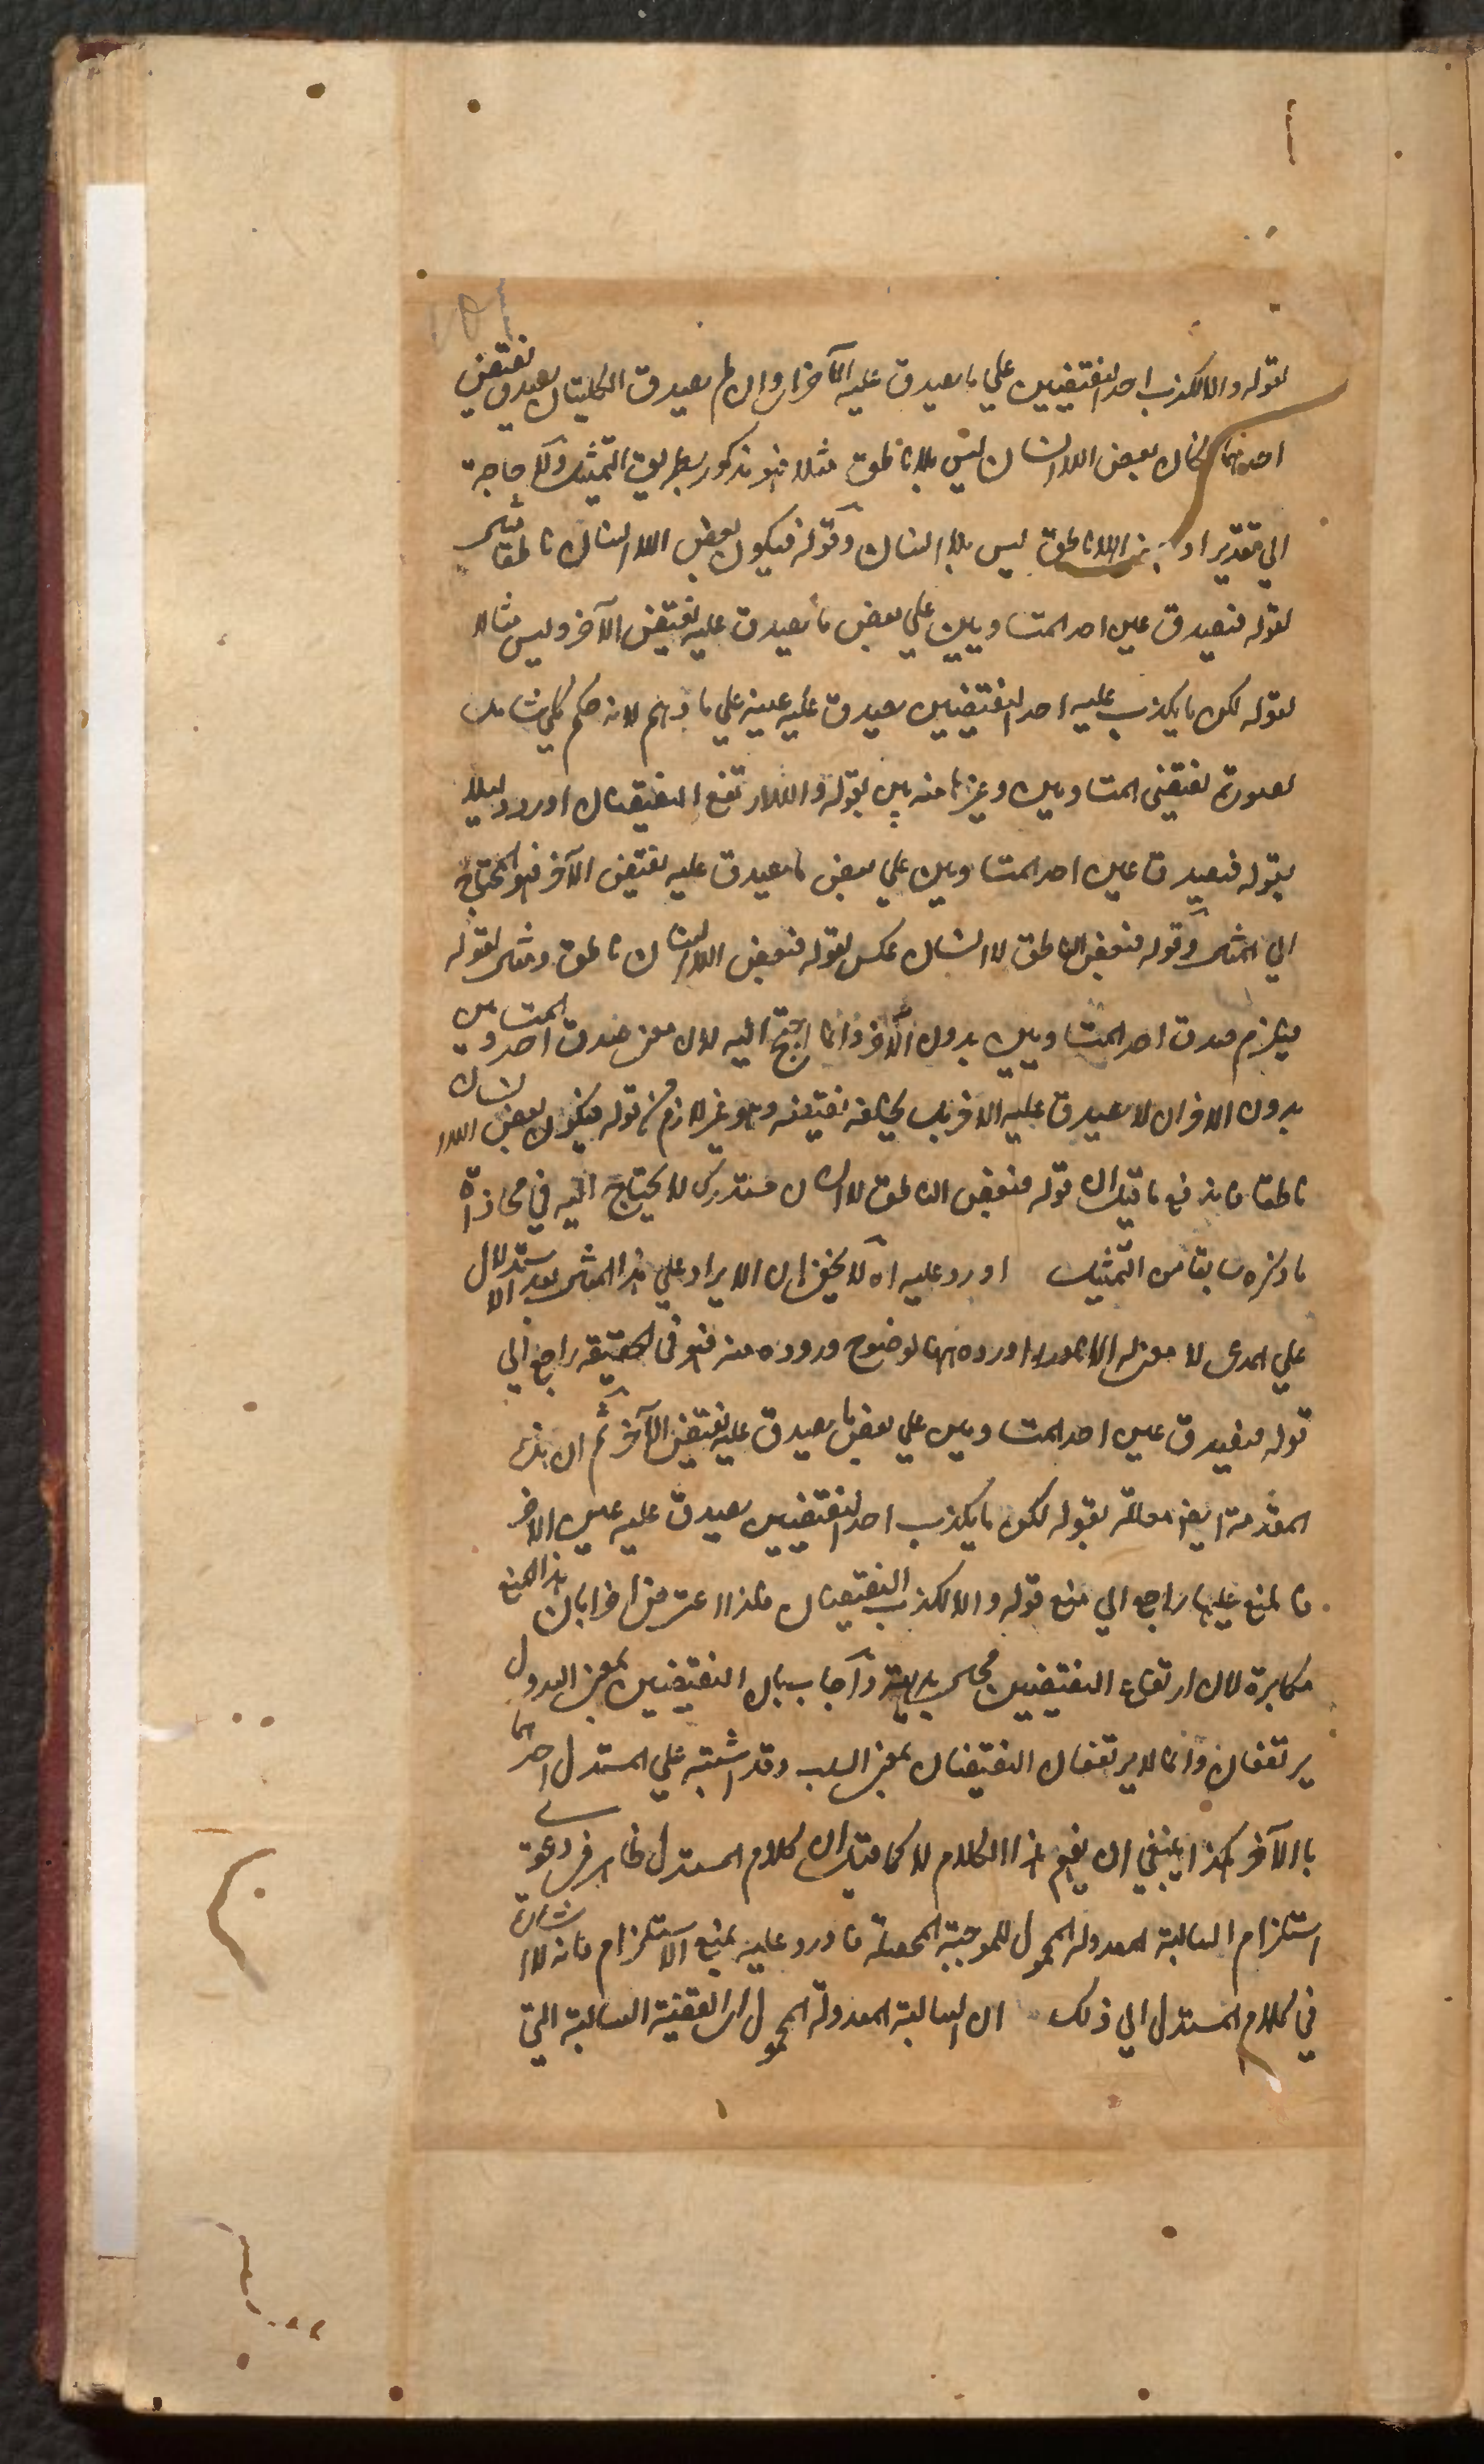 لقوله والا لكذب احد النقيضين علي ما يصدق عليه الآخر اي وان لم يصدق الكليتان يصدق نقيض
احدهما كان بعض اللاانسان ليس بلا ناطق مثلا فهو مذكور بطريق التمثيل ولا حاجة
الي تقدير او بعض اللاناطق ليس بلا انسان وقوله فيكون بعض اللاانسان ناطقا مثال
لقوله فيصدق عين احد المتساويين علي بعض ما يصدق عليه نقيض الآخر وليس مثالا
لقوله لكن ما يكذب عليه احد النقيضين يصدق عليه عينه علي ما وهم لانه حكم كلي شامل
لصورة نقيضي المتساويين وغيرها منه بين بقوله والا لارتفع النقيضان اورد دليلا
بقوله فيصدق عين احد المتساويين علي بعض ما يصدق عليه نقيض الآخر فهو المحتاج
الي المثال وقوله فبعض الناطق لا انسان عكس لقوله فبعض اللاانسان ناطق ومثال لقوله
فيلزم صدق احد المتساويين بدون الآخر وانما احتيج اليه لان معنى صدق احد المتساويين
بدون الاخر ان لا يصدق عليه الاخر بل نقيضه وهو غير لازم من قوله فيكون بعض اللاانسان
ناطقا فاندفع ما قيل ان قوله فبعض الناطق لا انسان مستدرك لا يحتاج اليه في محاذاة
ما ذكره سابقا من التمثيل اورد عليه اه لا يخفى ان الايراد علي هذا المثال بعد الاستدلال
علي المدعى لا معنى له الا انه اورده ههنا لوضوح وروده منه فهو في الحقيقة راجع الي
قوله فيصدق عين احد المتساويين علي بعض ما يصدق عليه نقيض الآخر ثم ان هذه
المقدمة ايضا معللة بقوله لكن ما يكذب احد النقيضين يصدق عليه عين الاخر
فالمنع عليها راجع الي منع قوله والا لكذب النقيضان فلذا اعترض اخرا بان هذا المنع
مكابرة لان ارتفاع النقيضين محال بديهة واجاب بان النقيضين بمعنى العدول
يرتفعان وانما لا يرتفعان النقيضان بمعنى السلب وقد اشتبه علي المستدل احدهما
بالآخر هكذا ينبغي ان يفهم هذا الكلام لا كما قيل ان كلام المستدل ظاهر في دعوى
استلزام السالبة المعدولة المحمول للموجبة المحصلة فاورد عليه بمنع الاستلزام فانه لا اشارة
في كلام المستدل الي ذلك ان السالبة المعدولة المحمول اي القضية السالبة التي